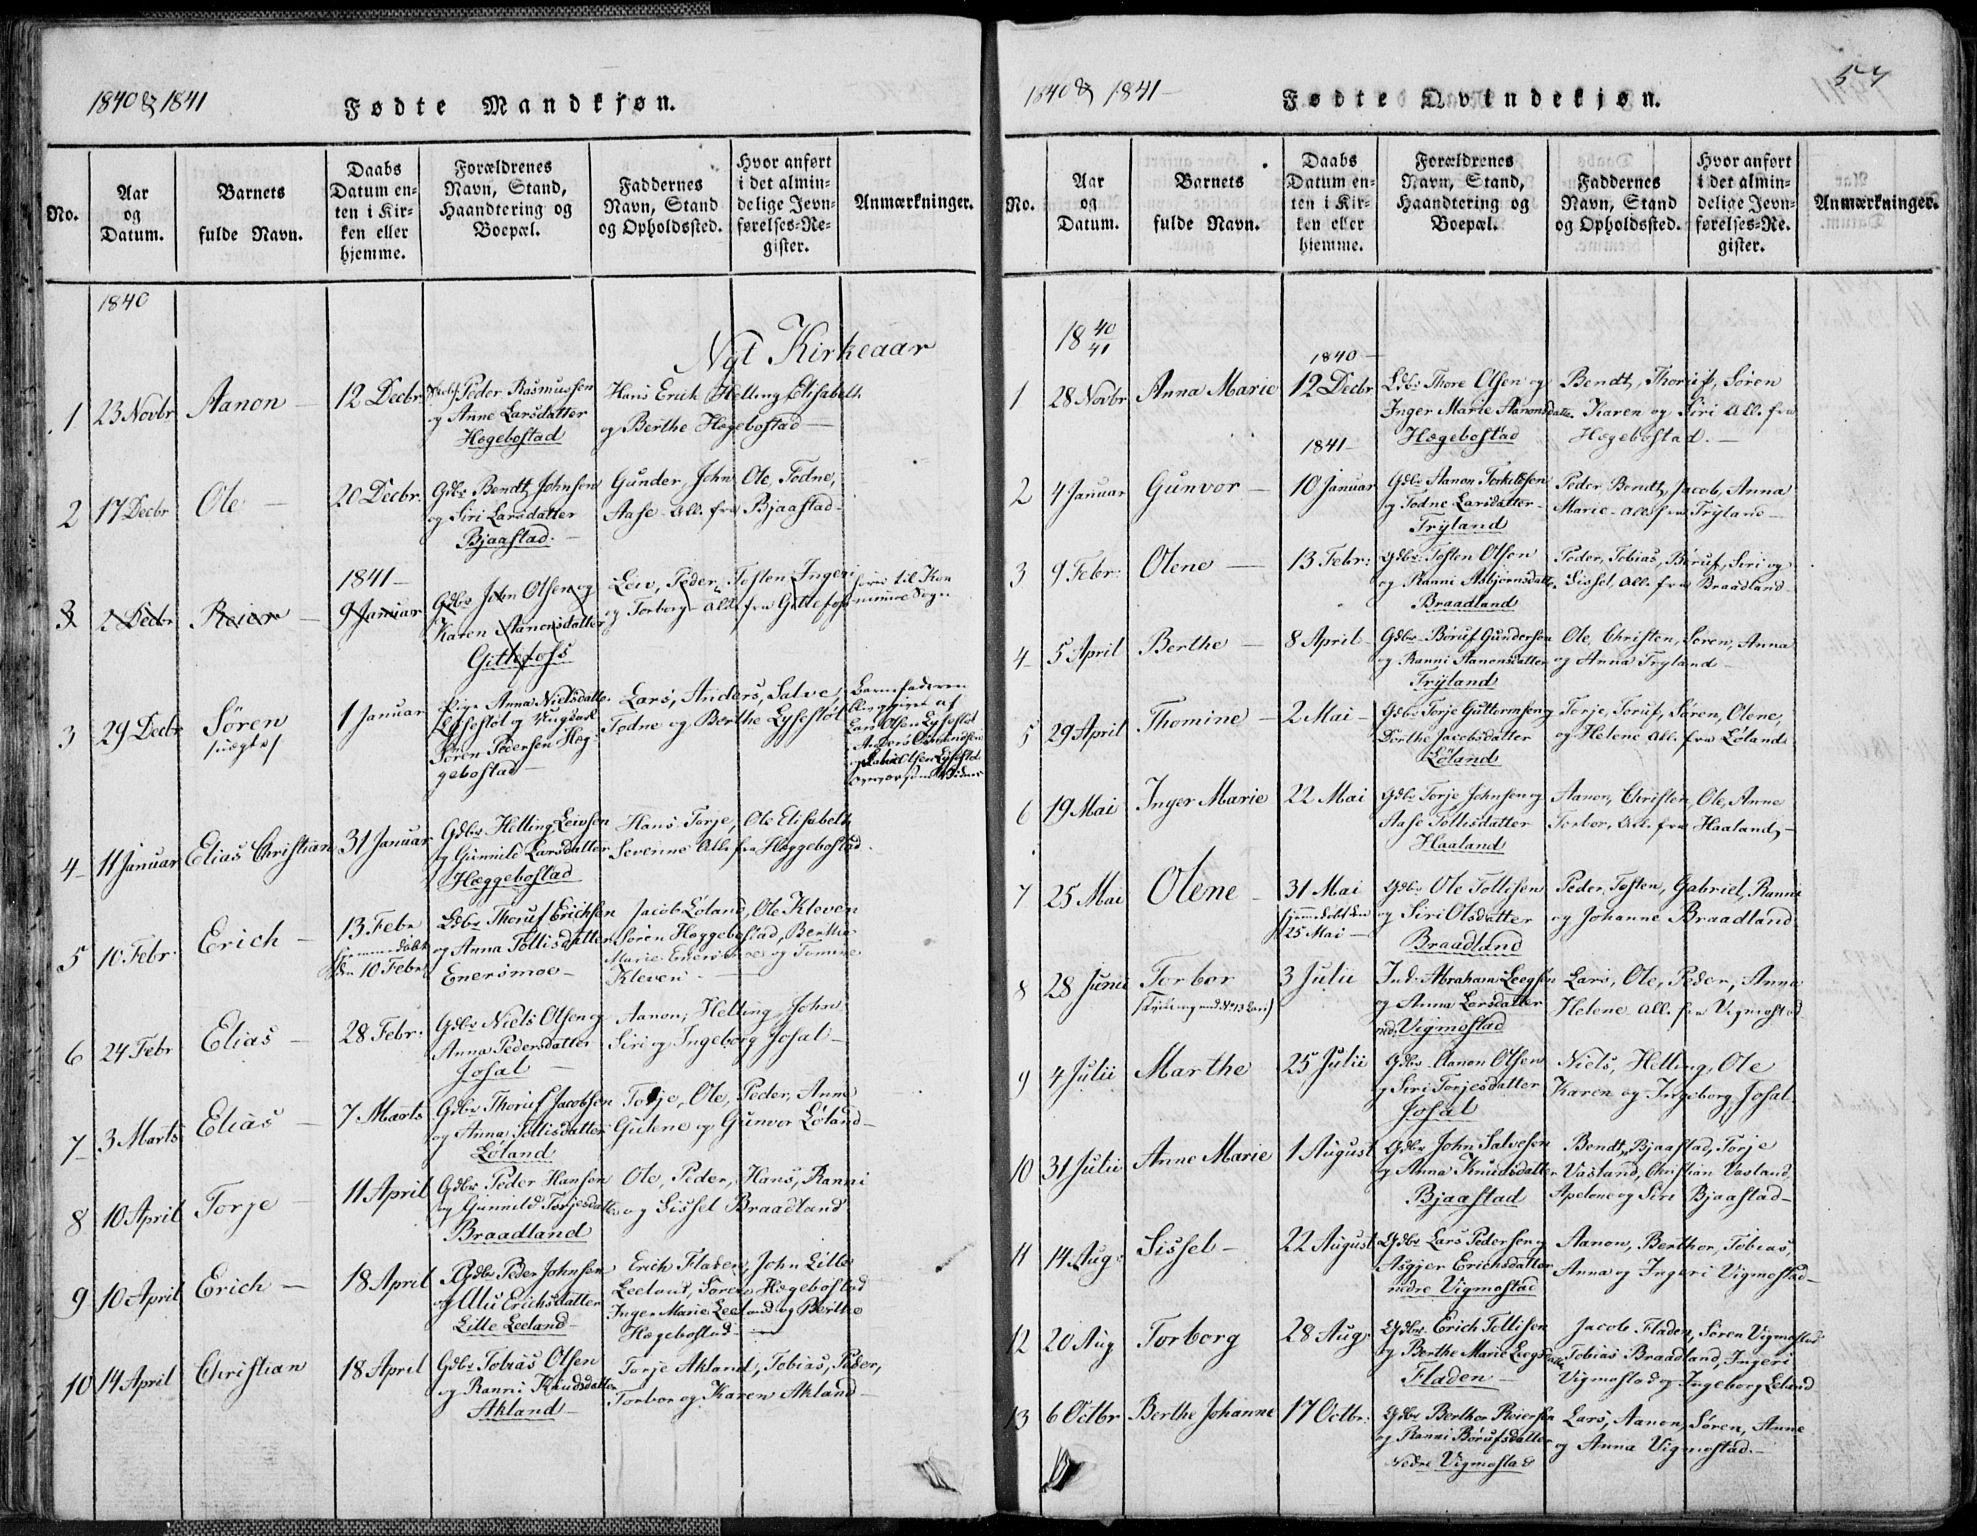 1840 & 1841
Fødte Mandkjøn.
No.
Aar
og
Datum.
Barnets
fulde Navn.
Daabs
Datum en-
ten i Kir-
ken eller
hjemme.
Forældrenes
Navn, Stand,
Haandtering og
Boepæl.
Faddernes
Navn, Stand
og Opholdssted.
Hvor anført
i det almin-
delige Jevn-
førelses-Re-
gister.
Anmærkninger.
1840
Nyt Kirkeaar
1 23 Novbr Aanon 12 Decbr
Peder Rasmussen
og Anne Larsdatter
Hægebostad
Hans Erich Helling Elisabeth
og Berthe Hægebostad
2 17 Decbr Ole 20 Decbr.
Gdbr Bendt Johnsen
og Siri Larsdatter
Bjaastad.
Gunder, John Ole, Todne,
Aase All. fra Bjaastad
1841
3 2 Decbr Reier 9 Januar
Gdbr John Olsen og
Karen Aanonsdatter
Gittlefoss
Leiv, Peder, Tosten Ingeri
og Torborg All. fra Gittlefoss
3 29 Decbr Søren 1 Januar
uægte
Pige Anna Nielsdatter
Lysestøl og Ungkarl
Søren Pedersen Hæg-
gebostad
Lars, Anders, Salve,
Todne og Berthe Lysestøl
Barnefaderen
Lars Olsen Lysestøl
4 11 Januar Elias Christian 31 Januar
Gdbr Helling Leivsen
og Gunnild Larsdatter
Hæggebostad
Hans Torje, Ole Elisabeth
Severine All. fra Hæggebostad
5 10 Febr Erich 13 Febr
hjemmedøbt
den 10 Febr
Thoruf Erichsen
og Anna Tollisdatter
Enersmoe
Jacob Løland, Ole Kleven
Søren Hæggebostad, Berthe
Marie Enersmoe og Tomine
Kleven
6 24 Febr Elias 28 Febr.
Gdbr Niels Olsen og
Anna Pedersdatter
Josal
Aanon, Helling, John
Siri og Ingeborg Josal
7 3 Marts Elias 7 Marts
Gdbr Thoruf Jacobsen
og Anna Tollisdatter
Løland
Torje, Ole, Peder, Anne
Gulene og Gunvor Løland
8 10 April Torje 11 April
Gdbr Peder Hansen
og Gunnild Torjesdatter
Braadland
Ole, Peder, Hans, Ranni
og Sissel Braadland
9 10 April Erich 18 April
Gdbr Peder Johnsen
og Alu Erichsdatter
Lille Leeland
Erich Fladen, John Lille
Leeland, Søren Hægebostad
Inger Marie Leeland og Berthe
Hægebostad
10 14 April Christian 18 April
Gdbr Tobias Olsen
og Ranni Knudsdatter
Akland
Torje Akland, Tobias, Peder,
Torbor og Karen Akland
1840 & 1841
Fødte Qvindekjøn.
57
No.
Aar
og
Datum.
Barnets
fulde Navn.
Daabs
Datum en-
ten i Kir-
ken eller
hjemme.
Forældrenes
Navn, Stand,
Haandtering og
Boepæl.
Faddernes
Navn, Stand
og Opholdssted.
Hvor anført
i det almin-
delige Jevn-
førelses-Re-
gister.
Anmærkninger.
18 40/41
1840
1 28 Novbr Anna Marie 12 Decbr
Thore Olsen og
Inger Marie Aanonsdatter
Hægebostad
Bendt, Thoruf, Søren
Karen og Siri All. fra
Hægebostad.
1841
2 4 Januar Gunvor 10 Januar
Gdbr Aanon Torkildsen
og Todne Larsdatter
Tryland
Peder, Bendt, Jacob, Anna
Marie All. fra Tryland
3 9 Febr: Olene 13 Febr:
Gdbr Tosten Olsen
og Ranni Asbjørnsdatter
Braadland
Peder, Tobias, Børuf, Siri og
Sissel, All. fra Braadland
4 5 April Berthe 8 April
Gdbr Børuf Gundersen
og Ranni Aanonsdatter
Tryland
Ole, Christen, Søren, Anna
og Anna Tryland
5 29 April Thomine 2 Mai
Gdbr Torje Guttormsen og
Dorthe Jacobsdatter
Løland
Torje, Toruf, Søren, Olene,
og Helene All. fra Løland
6 19 Mai Inger Marie 22 Mai
Gdbr Torje Johnsen og
Aase Tollisdatter
Haaland
Aanon, Christen, Ole, Anne
Torbor, All. fra Haaland
7 25 Mai Olene 31 Mai
hjemmedøbt den
25 Mai
Gdbr Ole Tollisen
og Siri Olsdatter
Braadland
Peder, Tosten, Gabriel, Ranni
og Johanne Braadland
8 28 Junii Torbor 3 Julii
Ind. Abraham Leegsen
og Anna Larsdatter
nd. Vigmostad
Lars, Ole, Peder, Anna
Helene All. fra Vigmostad
9 4 Julii Marthe 25 Julii
Gdbr Aanon Olsen
og Siri Torjesdatter
Josal
Niels, Helling, Ole
Karen og Ingeborg Josal
10 31 Julii Anne Marie 1 August
Gdbr John Salvesen
og Anna Knudsdatter
Bjaastad
Bendt Bjaastad, Torje
Vasland, Christian Vasland,
Apelone og Siri Bjaastad
11 14 Aug: Sissel 22 August
Gdbr Lars Pedersen og
Asgjer Erichsdatter
nedre Vigmostad
Aanon, Berthor, Tobias,
Anna og Ingeri Vigmostad
12 20 Aug Torborg 28 Aug:
Gdbr Erich Tollisen
og Berthe Marie Leegsdatter
Fladen
Jacob Fladen, Søren Vigmostad
Tobias Braadland, Ingeri
Vigmostad og Ingeborg Leland
13 6 Octbr Berthe Johanne 17 Octbr.
Gdbr Berthor Reiersen
og Ranni Børufsdatter
Nedre Vigmostad
Lars, Aanon, Søren, Anne
og Anna Vigmostad